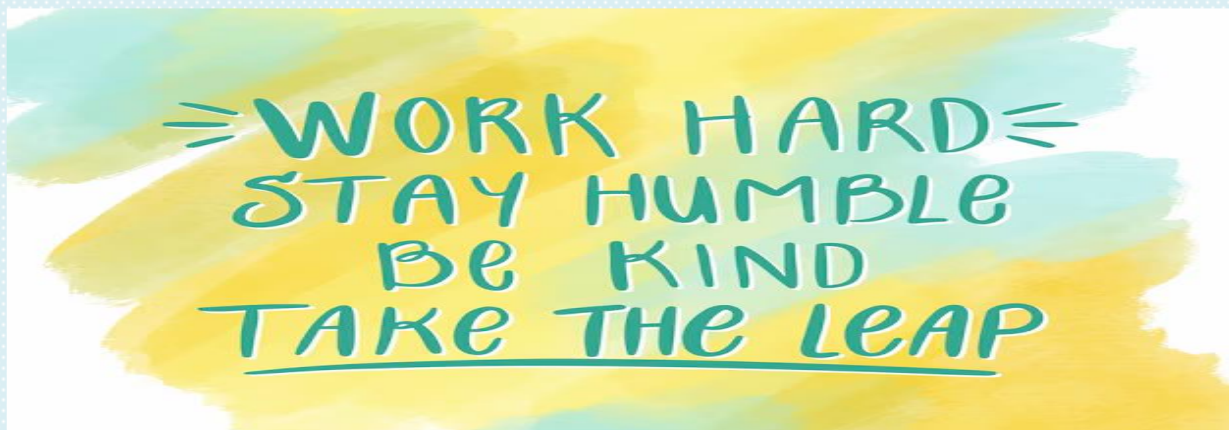 WORK HARD
STAY HUMBLe
Be KIND
TAKe THe LeAP